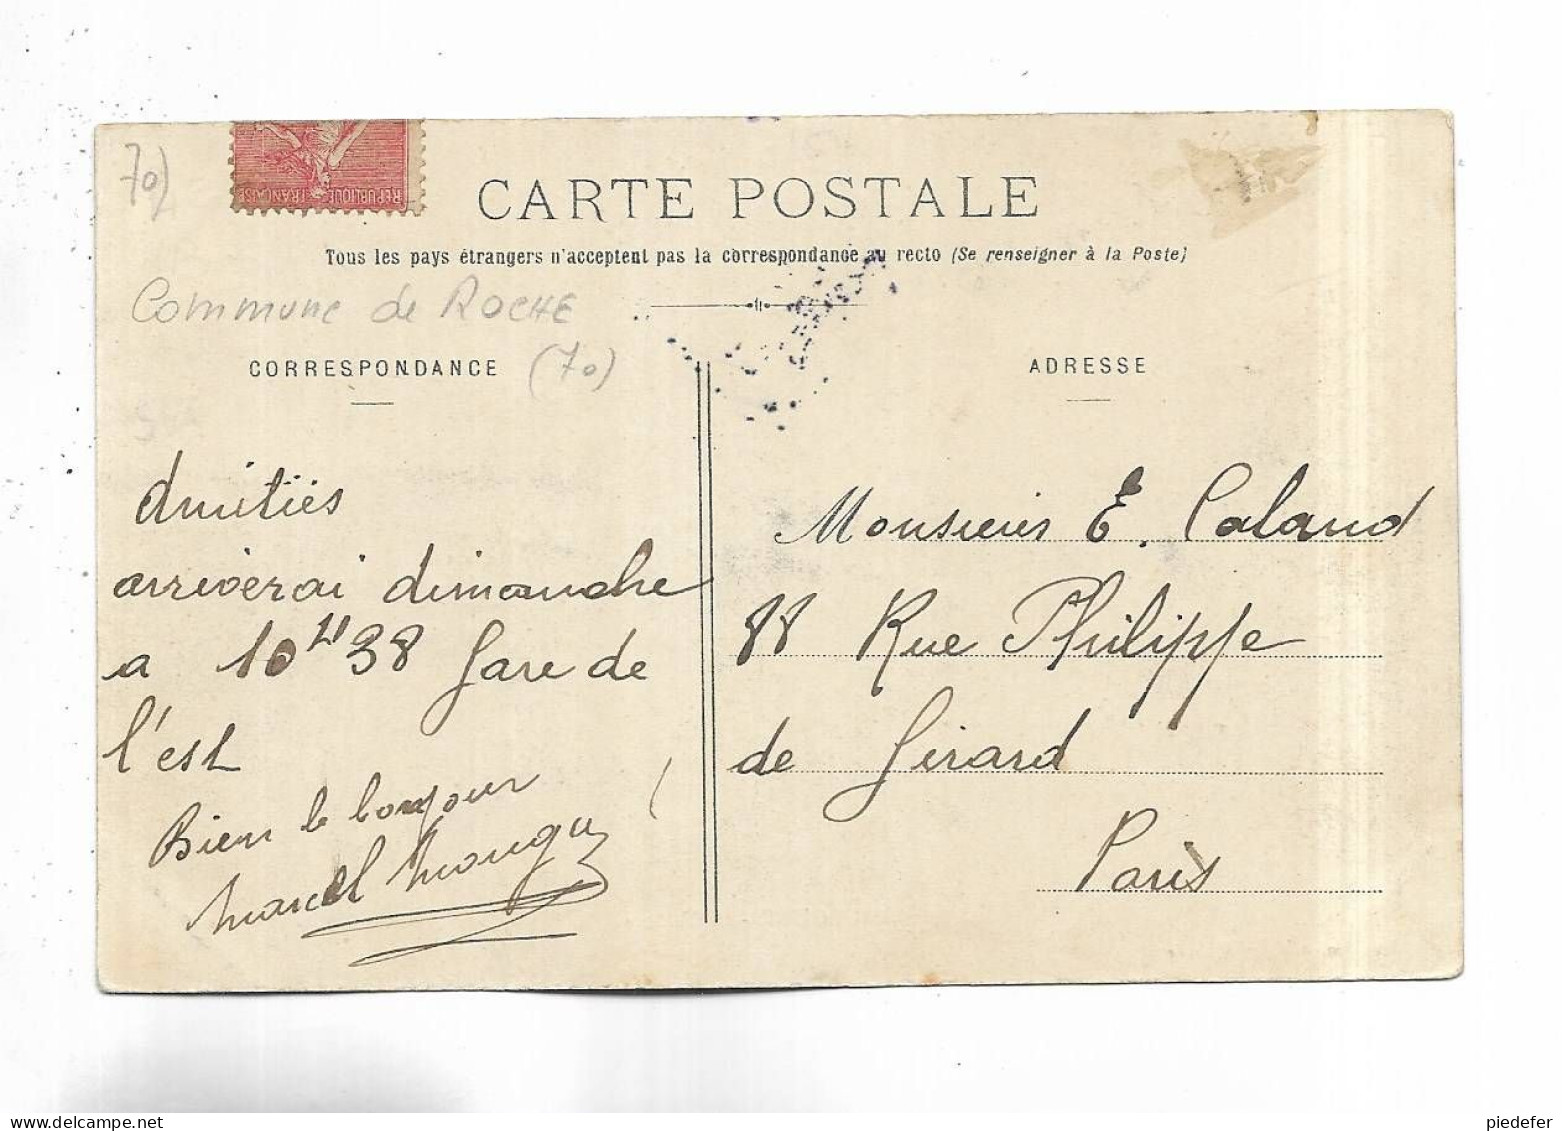 70)
REPUBLIQUE FRANÇAISE
CARTE POSTALE
Tous les pays étrangers n'acceptent pas la correspondance au recto (Se renseigner à la Poste)
Commune de ROCHE
(70)
CORRESPONDANCE
Amitiés
arriverai dimanche
a 10H38 Gare de
l'est
Bien le bonjour
Marcel
ADRESSE
Monsieur E. Caland
88 Rue Philippe
de Girard
Paris
www.delcampe.net
piedefer